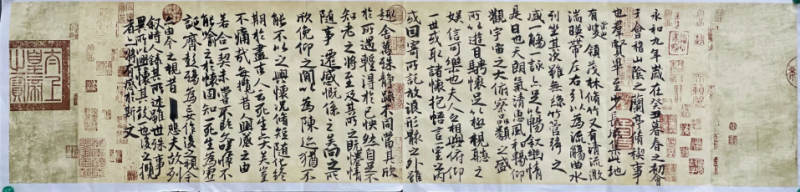 永和九年歲在癸丑暮春之初會
于會稽山陰之蘭亭脩稧事
也羣賢畢至少長咸集此地
有崇山峻領茂林脩竹又有清流激
湍暎帶左右引以為流觴曲水
列坐其次雖無絲竹管絃之
盛一觴一詠亦足以暢敘幽情
是日也天朗氣清惠風和暢仰
觀宇宙之大俯察品類之盛
所以遊目騁懷足以極視聽之
娛信可樂也夫人之相與俯仰
一世或取諸懷抱悟言一室之內
或因寄所託放浪形骸之外雖
趣舍萬殊靜躁不同當其欣
於所遇蹔得於己怏然自足不
知老之將至及其所之既惓情
隨事遷感慨係之矣向之所
欣俛仰之閒以為陳迹猶不
能不以之興懷況脩短隨化終
期於盡古人云死生亦大矣豈
不痛哉每攬昔人興感之由
若合一契未嘗不臨文嗟悼不
能喻之於懷固知一死生為虛
誕齊彭殤為妄作後之視今
亦由今之視昔悲夫故列
敘時人錄其所述雖世殊事
異所以興懷其致一也後之攬
者亦將有感於斯文